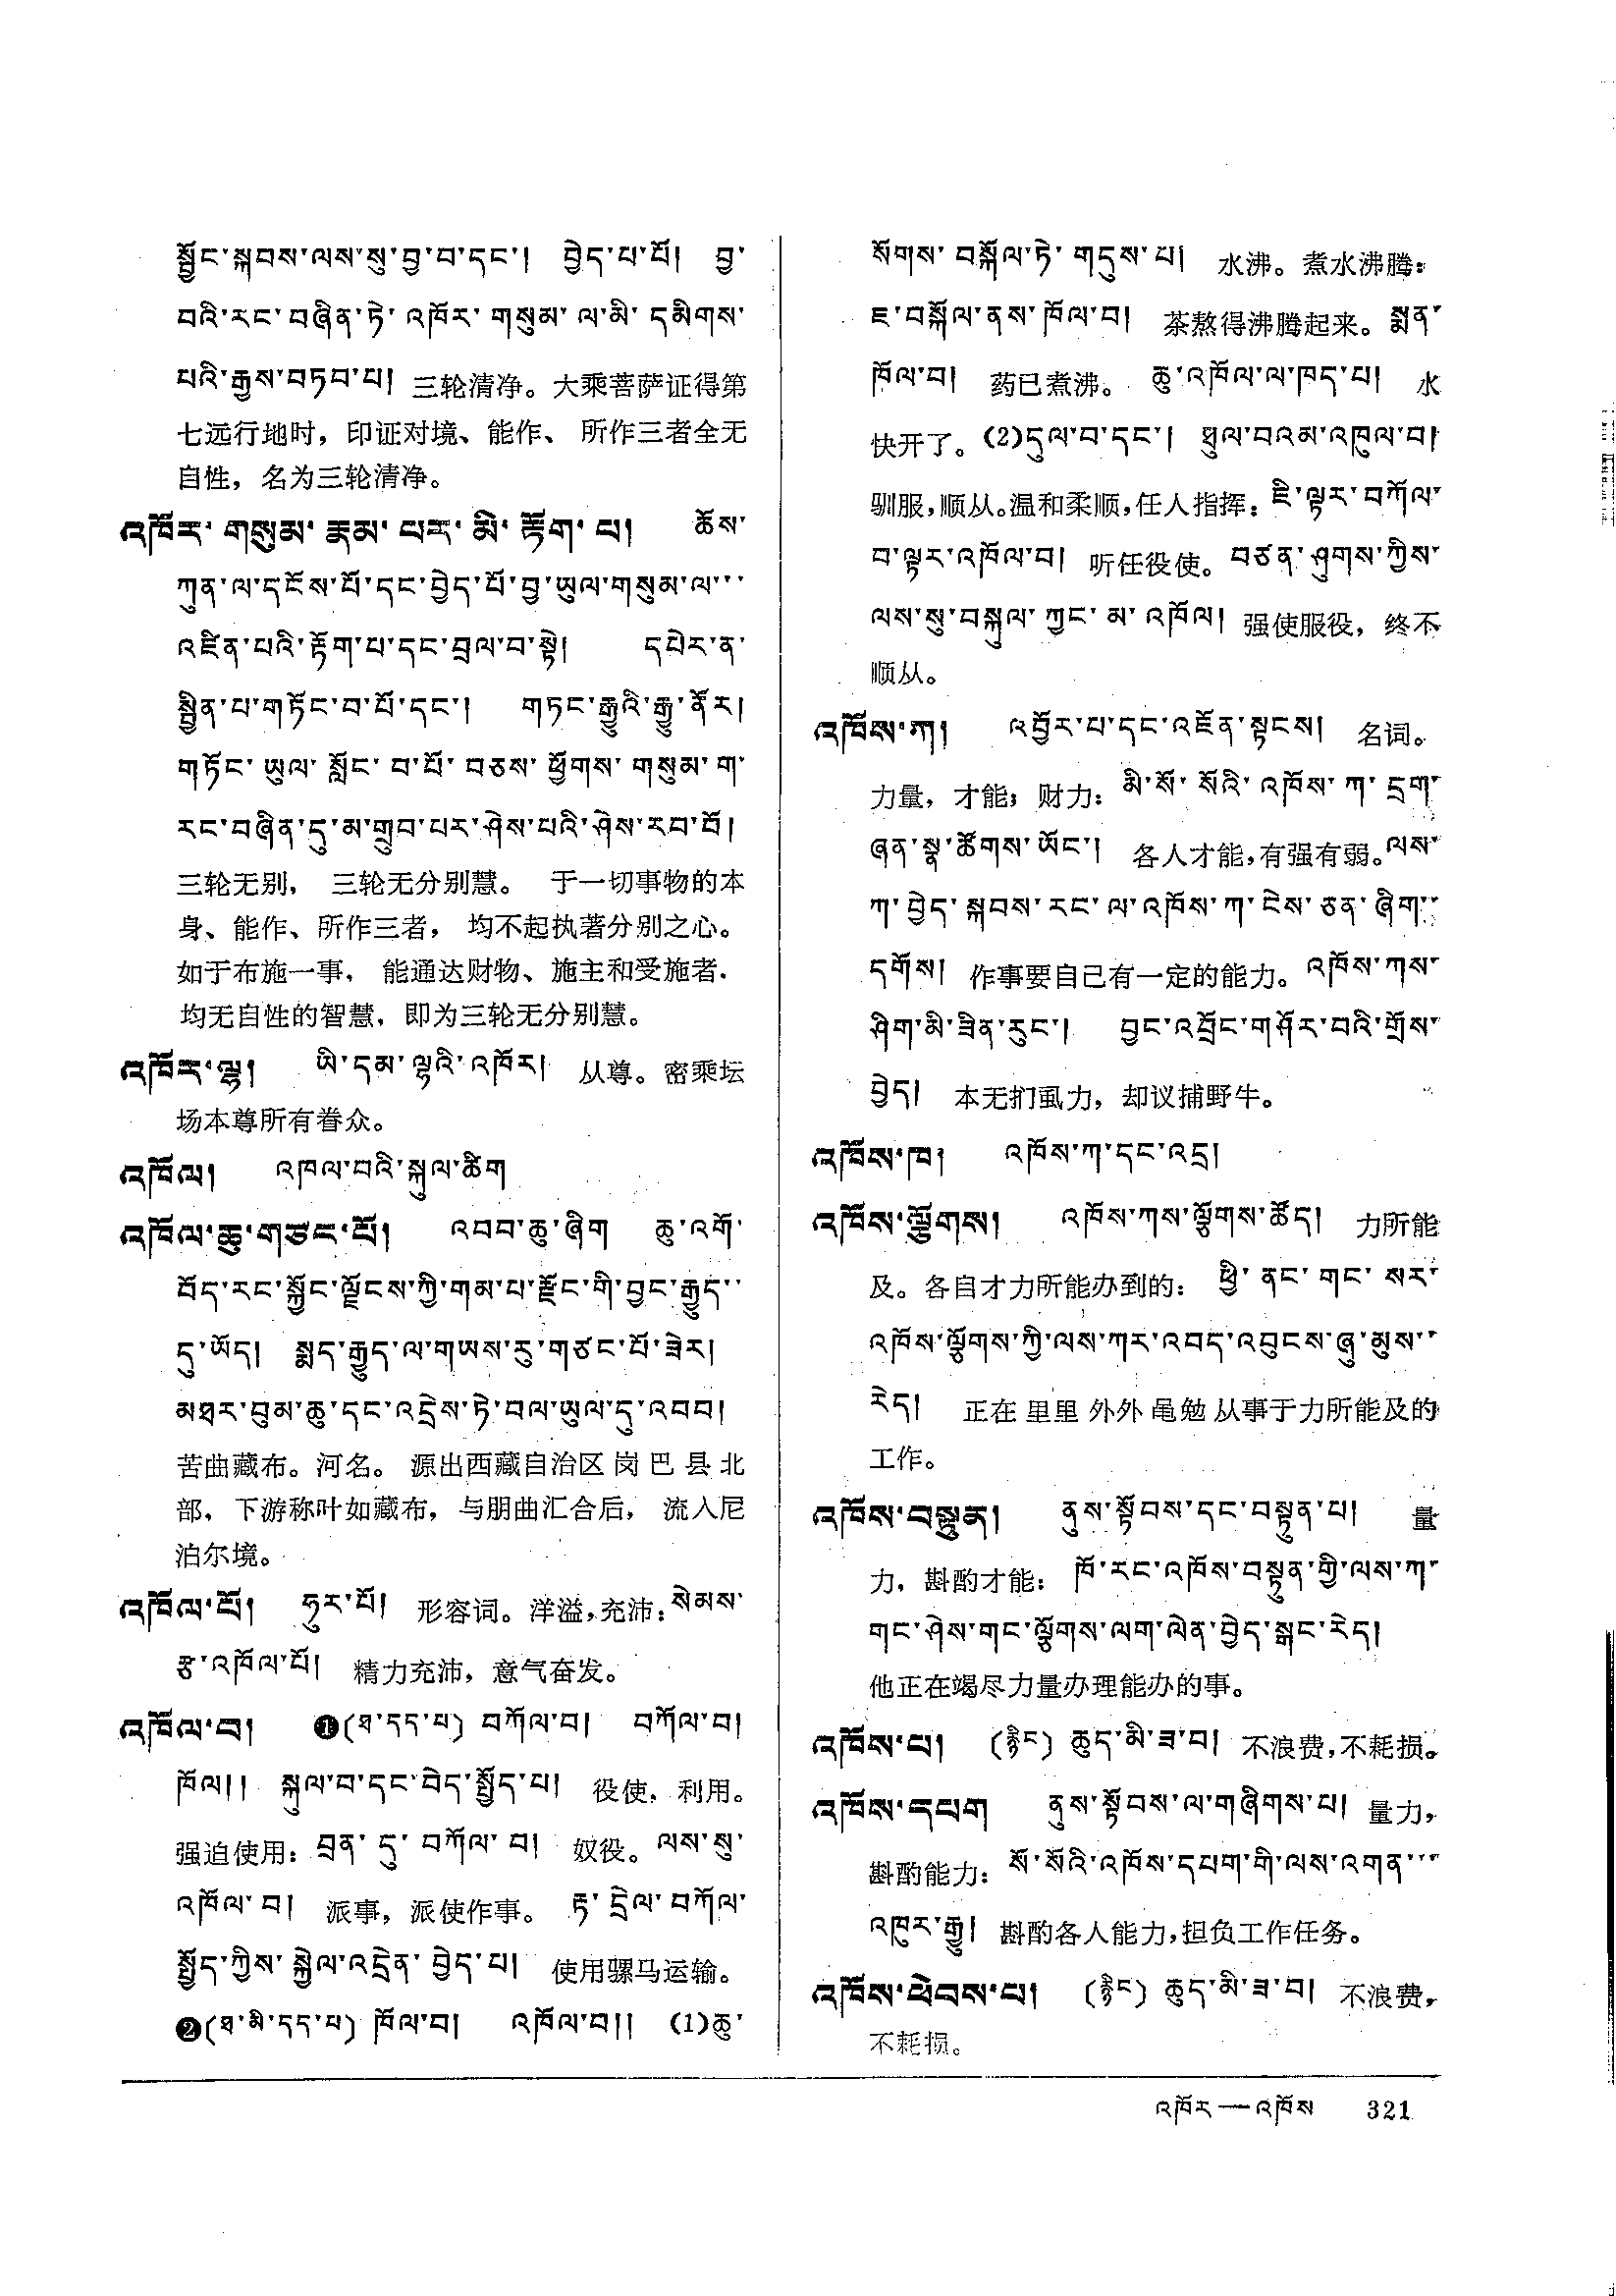 སྦྱོང་སྐབས་ལས་སུ་བྱ་བ་དང་། བྱེད་པ་པོ། བྱ་
བའི་རང་བཞིན་ཏེ་འཁོར་གསུམ་ལ་མི་དམིགས་
པའི་རྒྱས་བཏབ་པ། 三轮清净。大乘菩萨证得第
七远行地时，印证对境、能作、所作三者全无
自性，名为三轮清净。
འཁོར་གསུམ་རྣམ་པར་མི་རྟོག་པ། ཆོས་
ཀུན་ལ་དངོས་པོ་དང་བྱེད་པོ་བྱ་ཡུལ་གསུམ་ལ་་་
འཛིན་པའི་རྟོག་པ་དང་བྲལ་བ་སྟེ། དཔེར་ན་
སྦྱིན་པ་གཏོང་བ་པོ་དང་། གཏང་རྒྱུའི་རྒྱུ་ནོར།
གཏོང་ཡུལ་སློང་བ་པོ་བཅས་ཕྱོགས་གསུམ་ག་
རང་བཞིན་དུ་མ་གྲུབ་པར་ཤེས་པའི་ཤེས་རབ་བོ།
三轮无别，三轮无分别慧。于一切事物的本
身、能作、所作三者，均不起执著分别之心。
如于布施一事，能通达财物、施主和受施者，
均无自性的智慧，即为三轮无分别慧。
འཁོར་ལྷ། ཡི་དམ་ལྷའི་འཁོར། 从尊。密乘坛
场本尊所有眷众。
འཁོལ། འཁལ་བའི་སྐུལ་ཚིག
འཁོལ་ཆུ་གཙང་པོ། འབབ་ཆུ་ཞིག ཆུ་འགོ་
བོད་རང་སྐྱོང་ལྗོངས་ཀྱི་གམ་པ་རྫོང་གི་བྱང་རྒྱུད་་
དུ་ཡོད། སྨད་རྒྱུད་ལ་གཡས་རུ་གཙང་པོ་ཟེར།
མཐར་བུམ་ཆུ་དང་འདྲེས་ཏེ་བལ་ཡུལ་དུ་འབབ།
苦曲藏布。河名。源出西藏自治区岗巴县北
部，下游称叶如藏布，与朋曲汇合后，流入尼
泊尔境。
འཁོལ་པོ། ཧུར་པོ། 形容词。洋溢，充沛：སེམས་
རྩ་འཁོལ་པོ། 精力充沛，意气奋发。
འཁོལ་བ། ❶(ཐ་དད་པ) བཀོལ་བ། བཀོལ་བ།
ཁོལ།། སྐུལ་བ་དང་བེད་སྤྱོད་པ། 役使，利用。
强迫使用：བྲན་དུ་བཀོལ་བ། 奴役。ལས་སུ་
འཁོལ་བ། 派事，派使作事。རྟ་དྲེལ་བཀོལ་
སྤྱོད་ཀྱིས་སྐྱེལ་འདྲེན་བྱེད་པ། 使用骡马运输。
❷(ཐ་མི་དད་པ) ཁོལ་བ། འཁོལ་བ།། (1)ཆུ་
སོགས་བསྐོལ་ཏེ་གདུས་པ། 水沸。煮水沸腾：
ཇ་བསྐོལ་ནས་ཁོལ་བ། 茶熬得沸腾起来。སྨན་
ཁོལ་བ། 药已煮沸。ཆུ་འཁོལ་ལ་ཁད་པ། 水
快开了。(2)དུལ་བ་དང་། ཕུལ་བའམ་འཁུལ་བ།
驯服，顺从。温和柔顺，任人指挥：ཇི་ལྟར་བཀོལ་
བ་ལྟར་འཁོལ་བ། 听任役使。བཙན་ཤུགས་ཀྱིས་
ལས་སུ་བསྐུལ་ཀྱང་མ་འཁོལ། 强使服役，终不
顺从。
འཁོས་ཀ། འབྱོར་པ་དང་འཇོན་སྟངས། 名词。
力量，才能；财力：མི་སོ་སོའི་འཁོས་ཀ་དྲག་
ཞན་སྣ་ཚོགས་ཡོང་། 各人才能，有强有弱。ལས་
ཀ་བྱེད་སྐབས་རང་ལ་འཁོས་ཀ་ངེས་ཅན་ཞིག་་
དགོས། 作事要自己有一定的能力。འཁོས་ཀས་
ཤིག་མི་ཟིན་རུང་། བྱང་འབྲོང་གཤོར་བའི་གྲོས་
བྱེད། 本无扪虱力，却议捕野牛。
འཁོས་ཁ། འཁོས་ཀ་དང་འདྲ།
འཁོས་ལྕོགས། འཁོས་ཀས་ལྕོགས་ཚོད། 力所能
及。各自才力所能办到的：ཕྱི་ནང་གང་སར་
འཁོས་ལྕོགས་ཀྱི་ལས་ཀར་འབད་འབུངས་ཞུ་མུས་་
རེད། 正在里里外外黾勉从事于力所能及的
工作。
འཁོས་བསྟུན། ནུས་སྟོབས་དང་བསྟུན་པ། 量
力，斟酌才能：ཁོ་རང་འཁོས་བསྟུན་གྱི་ལས་ཀ་
གང་ཤེས་གང་ལྕོགས་ལག་ལེན་བྱེད་སྒང་རེད།
他正在竭尽力量办理能办的事。
འཁོས་པ། (རྙིང) ཆུད་མི་ཟ་བ། 不浪费，不耗损。
འཁོས་དཔག ནུས་སྟོབས་ལ་གཞིགས་པ། 量力，
斟酌能力：སོ་སོའི་འཁོས་དཔག་གི་ལས་འགན་་་
འཁུར་རྒྱུ། 斟酌各人能力，担负工作任务。
འཁོས་ཕེབས་པ། (རྙིང) ཆུད་མི་ཟ་བ། 不浪费，
不耗损。
འཁོར—འཁོས 321